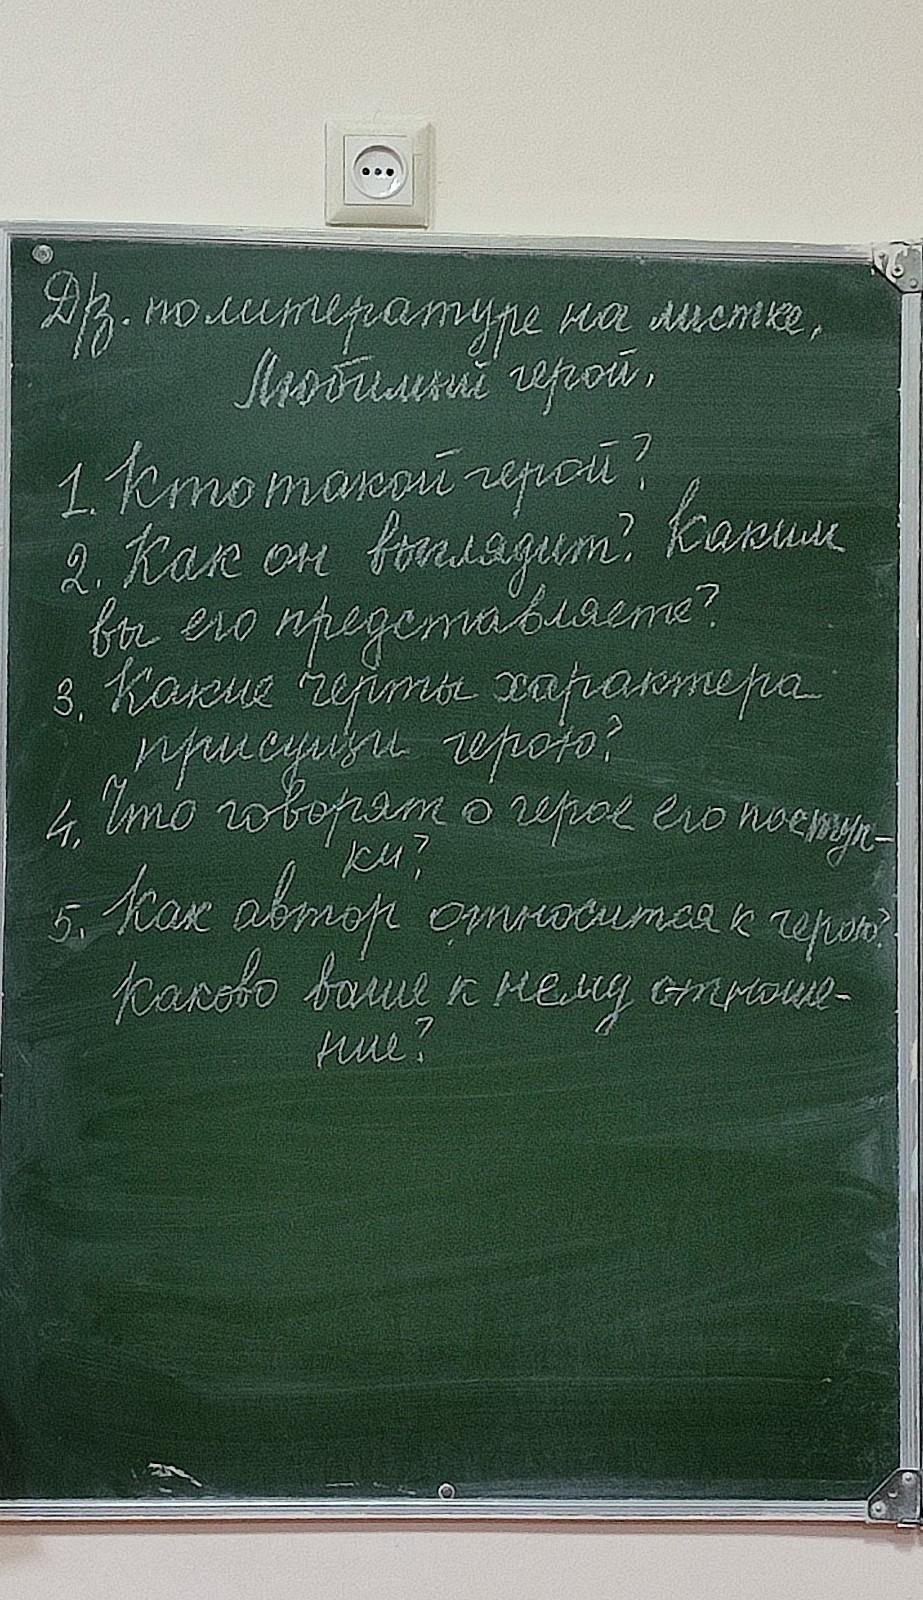 Д/з. по литературе на листке.
Любимый герой.
1. Кто такой герой?
2. Как он выглядит? Каким
вы его представляете?
3. Какие черты характера
присущи герою?
4. Что говорят о герое его поступ-
ки?
5. Как автор относится к герою?
Каково ваше к нему отноше-
ние?